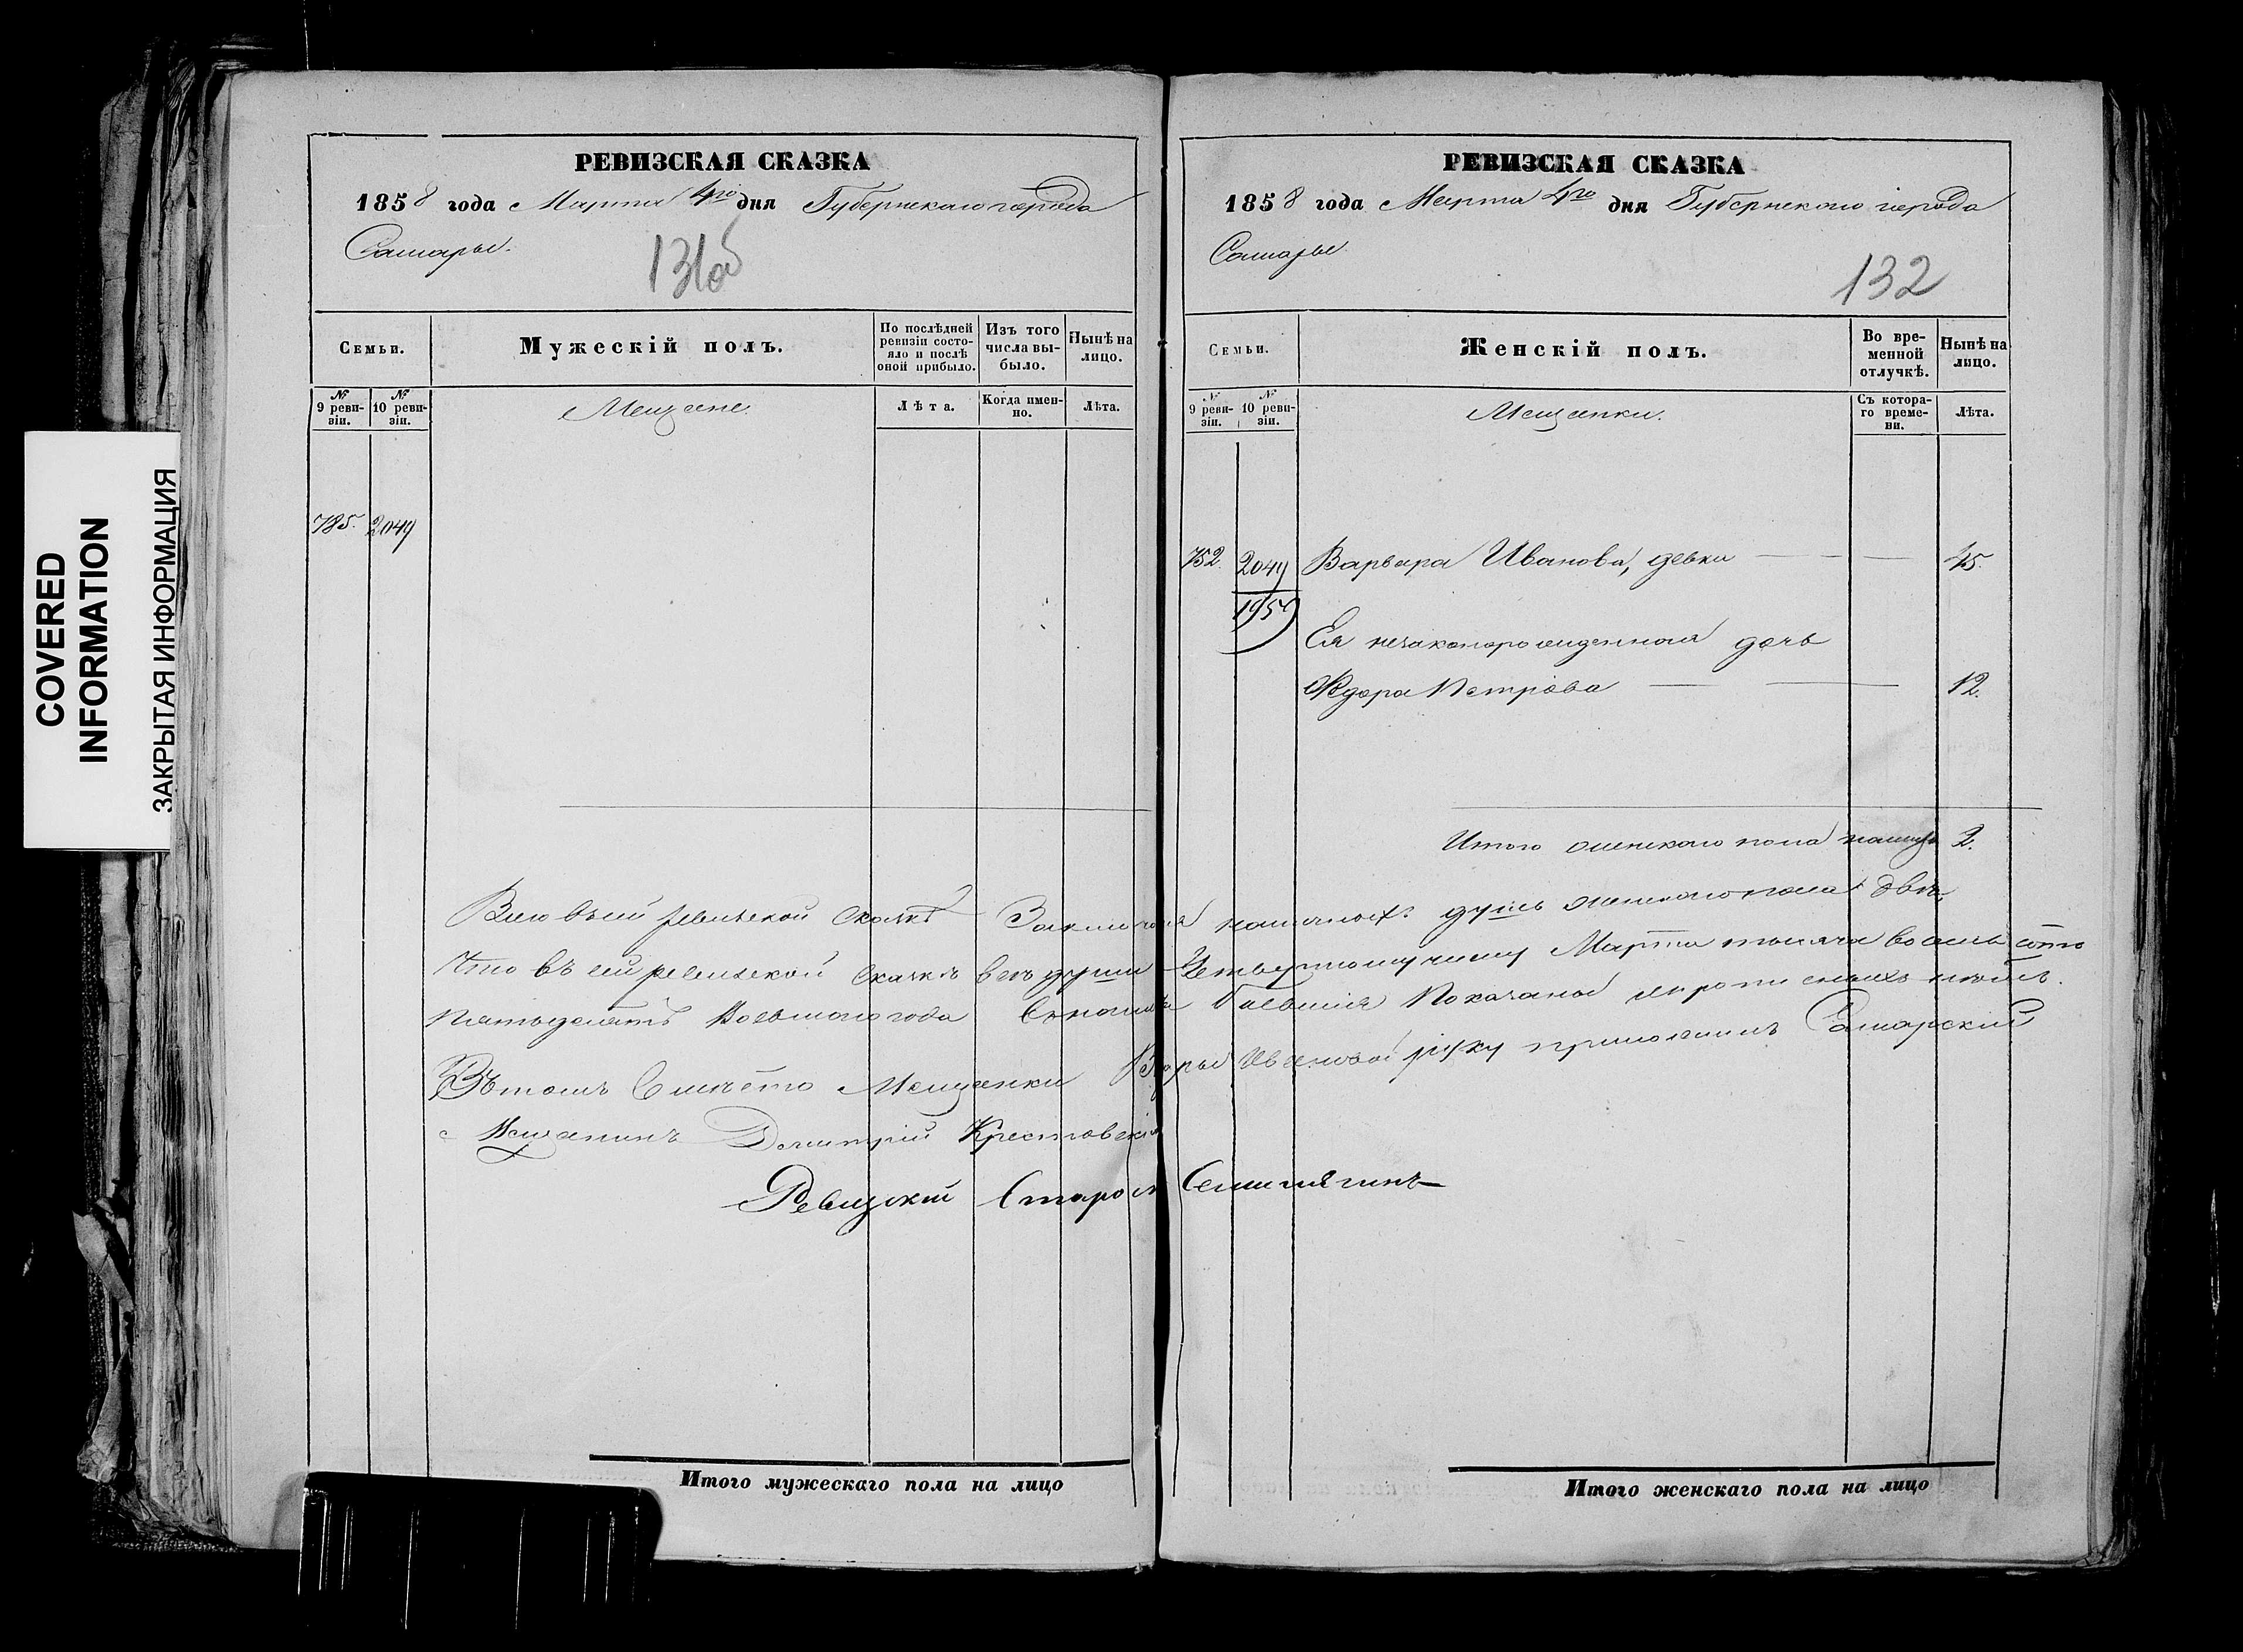 COVERED
INFORMATION
ЗАКРЫТАЯ ИНФОРМАЦИЯ
РЕВИЗСКАЯ СКАЗКА
1858 года Марта 4го дня Губернскаго города
Самары.
131об
Семьи.
Мужескій полъ.
По послѣдней ревизіи состояло и послѣ оной прибыло.
Изъ того числа выбыло.
Нынѣ на лицо.
№ 9 ревизіи.
№ 10 ревизіи.
Мещане.
Лѣта.
Когда именно.
Лѣта.
785. 2049
РЕВИЗСКАЯ СКАЗКА
1858 года Марта 4го дня Губернскаго города
Самары
132
Семьи.
Женскій полъ.
Во временной отлучкѣ.
Нынѣ на лицо.
№ 9 ревизіи.
№ 10 ревизіи.
Мещанки.
Съ котораго времени.
Лѣта.
752. 2049 Варвара Иванова, девка 45.
1959
Ея незаконорожденная дочь
Федора Петрова 12.
Итого женскаго пола налицо 2.
ревизской сказкѣ наличныхъ душъ женскаго пола двѣ,
Что въ сей ревизской сказкѣ все души Четвертому числу Марта тысяча восемь сотъ
Пятьдесятъ Восьмаго года Показаны
Въ томъ вместо Мещанки Ивановой руку приложилъ Самарский
Мещанинъ Димитрий Крестовский
Ревизский Староста Семипягинъ
Итого мужескаго пола на лицо
Итого женскаго пола на лицо